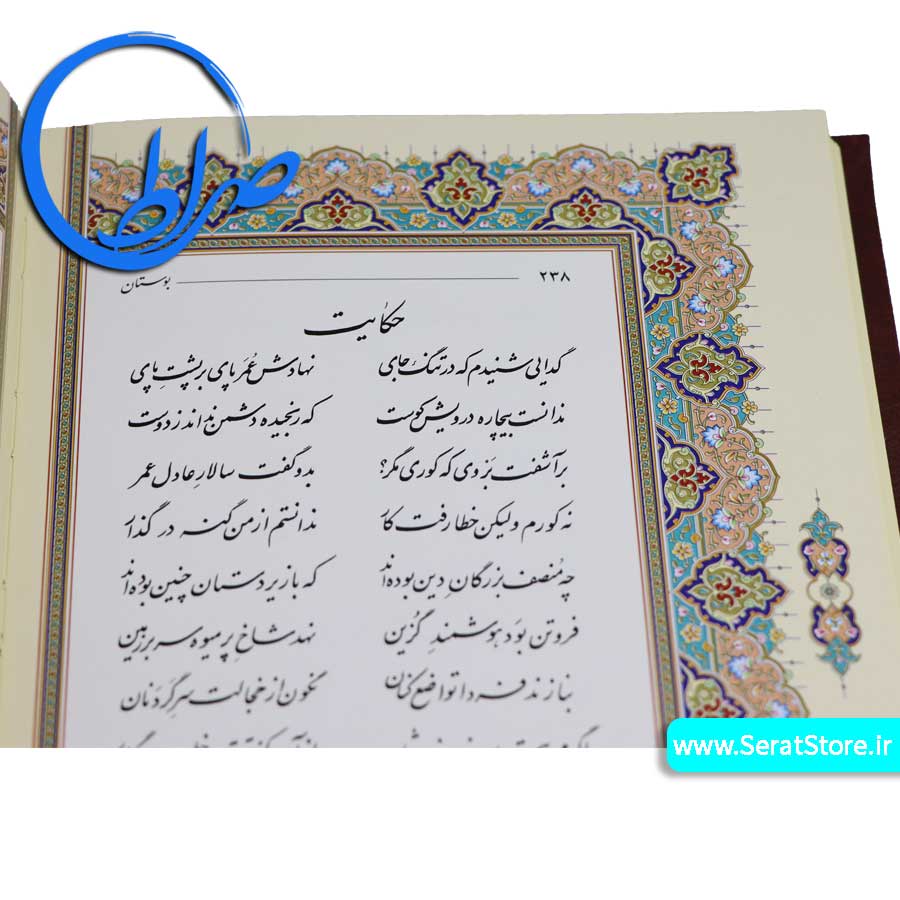 صراط
۲۳۸ بوستان
حکایت
گدایی شنیدم که در تنگ جای نهادش عُمَر پای بر پشتِ پای
ندانست بیچاره درویش کوست که رنجیده دشمن نداند ز دوست
برآشفت بَر وی که کوری مگر؟ بدو گفت سالارِ عادل عمر
نه کورم ولیکن خطا رفت کار ندانستم از من گنه در گذار
چه مُنصف بزرگانِ دین بوده‌اند که با زیردستان چنین بوده‌اند
فروتن بوَد هوشمندِ گُزین نهد شاخِ پر میوه سر بر زمین
بنازند فردا تواضع کنان نگون از خجالت سرِ گردنان
www.SeratStore.ir